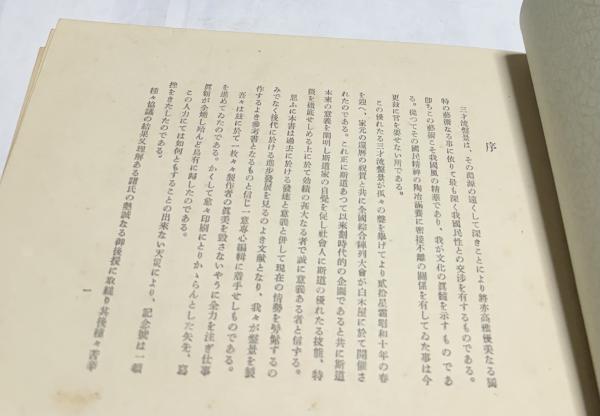 序
三才流盤景は、その淵源の遠くして深きことにより將亦高雅優美なる獨
特の藝術なる事に依りて最も深く我國民性との交渉を有するものである。
卽ちこの藝術こそ我國風の精華であり、我が文化の眞髓を示すものであ
る。從つてその國民精神の陶冶涵養に密接不離の關係を有してゐた事は今
更玆に言を要せない所である。
この優れたる三才流盤景が孤々の聲を擧げてより貳拾星霜昭和十年の春
を迎へ、家元の還曆の祝賀と共に全國綜合陣列大會が白木屋に於て開催さ
れたのである。これ正に斯道あつて以來劃時代的の企圖であると共に斯道
本來の意義を闡明し斯道家の自覺を促し社會人に斯道の優れたる技能、特
徵を徹底せしめる上に於て効績の甚大なる者で誠に意義ある者と信ずる。
思ふに本書は過去に於ける發達と意義と併して現在の情勢を髣髴するの
みでなく後代に於ける進步發展を見るのよき文獻となり、我々が盤景を製
作するよき參考書となるものと信じ一意專心編輯に着手せしものである。
吾々は玆に於て一枚々々製作者の眞美を毀さないやうに全力を注ぎ仕事
を進めてゐたのである。かくして愈々印刷にとりかゝらんとした矢先、寫
眞類が全燒し殆んど烏有に歸したのである。
この人力にては如何ともすることの出來ない天災により、記念號は一頓
挫をきたしたのである。
種々協議の結果又理解ある諸氏の熱誠なる御後援に取縋り其後種々苦辛
一